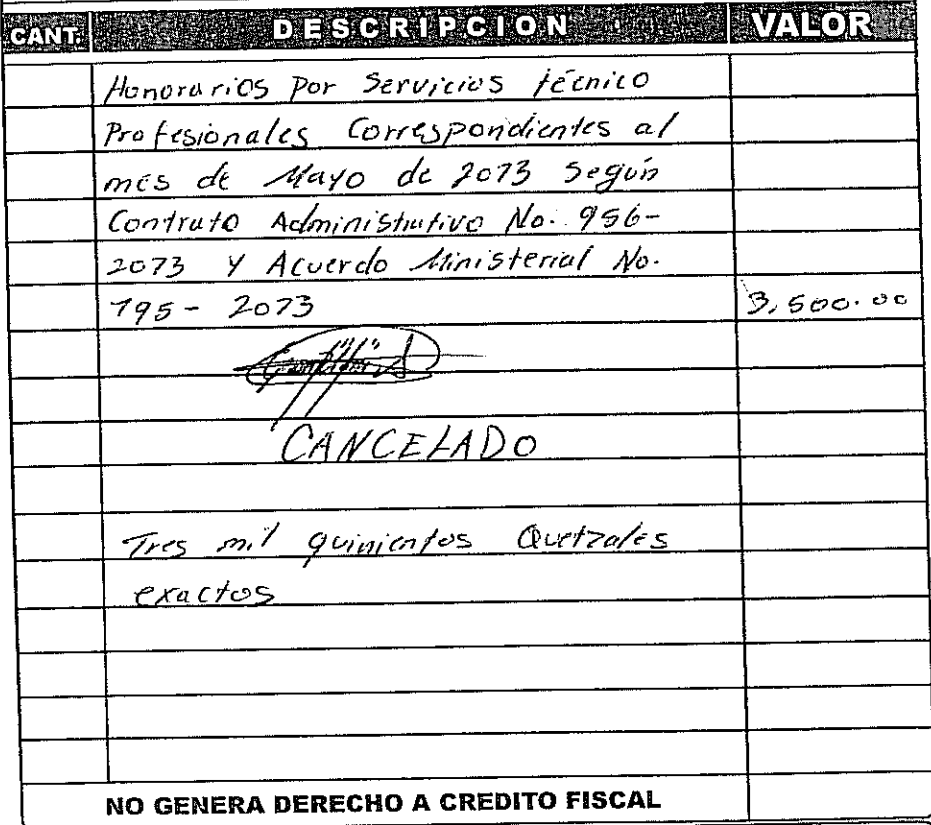 CANT. DESCRIPCION VALOR
Honorarios por Servicios técnico
Profesionales Correspondientes al
mes de Mayo de 2013 Según
Contrato Administrativo No. 956-
2013 Y Acuerdo Ministerial No.
195- 2013 3,500.00
CANCELADO
Tres mil quinientos Quetzales
exactos
NO GENERA DERECHO A CREDITO FISCAL